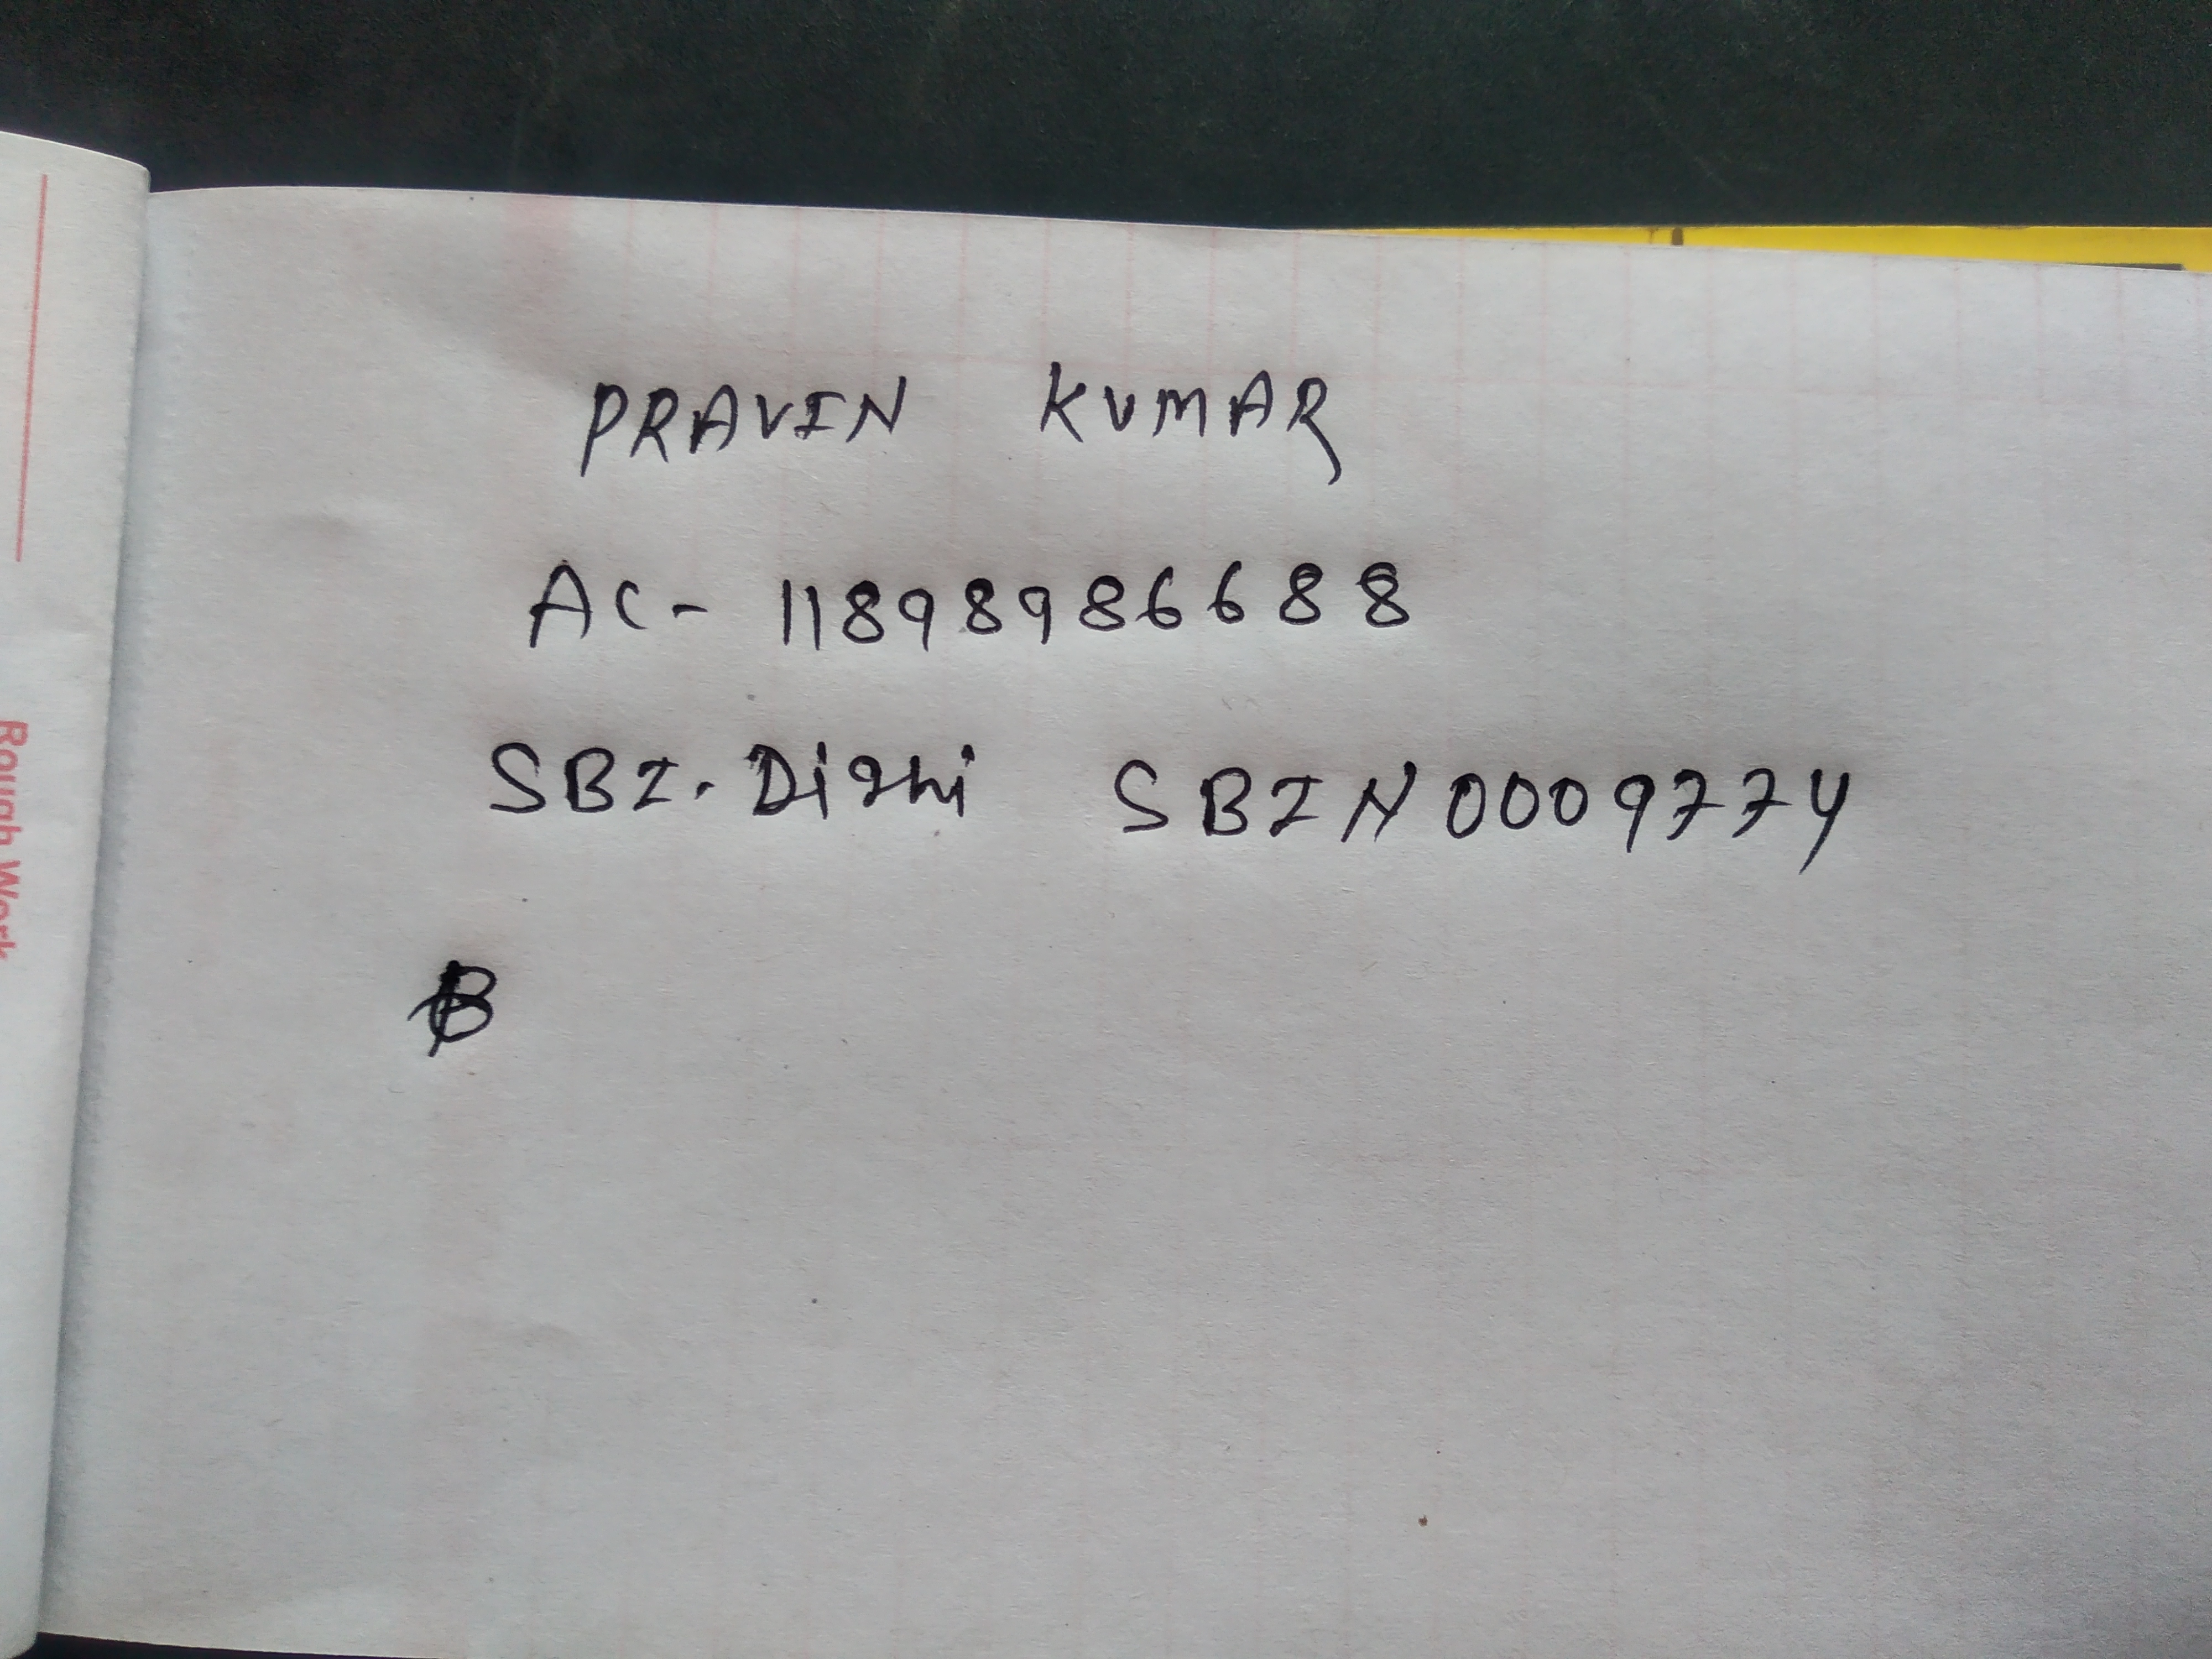 PRAVIN KUMAR
AC- 11898986688
SBI. Dighi SBIN0009774
B
Rough Work